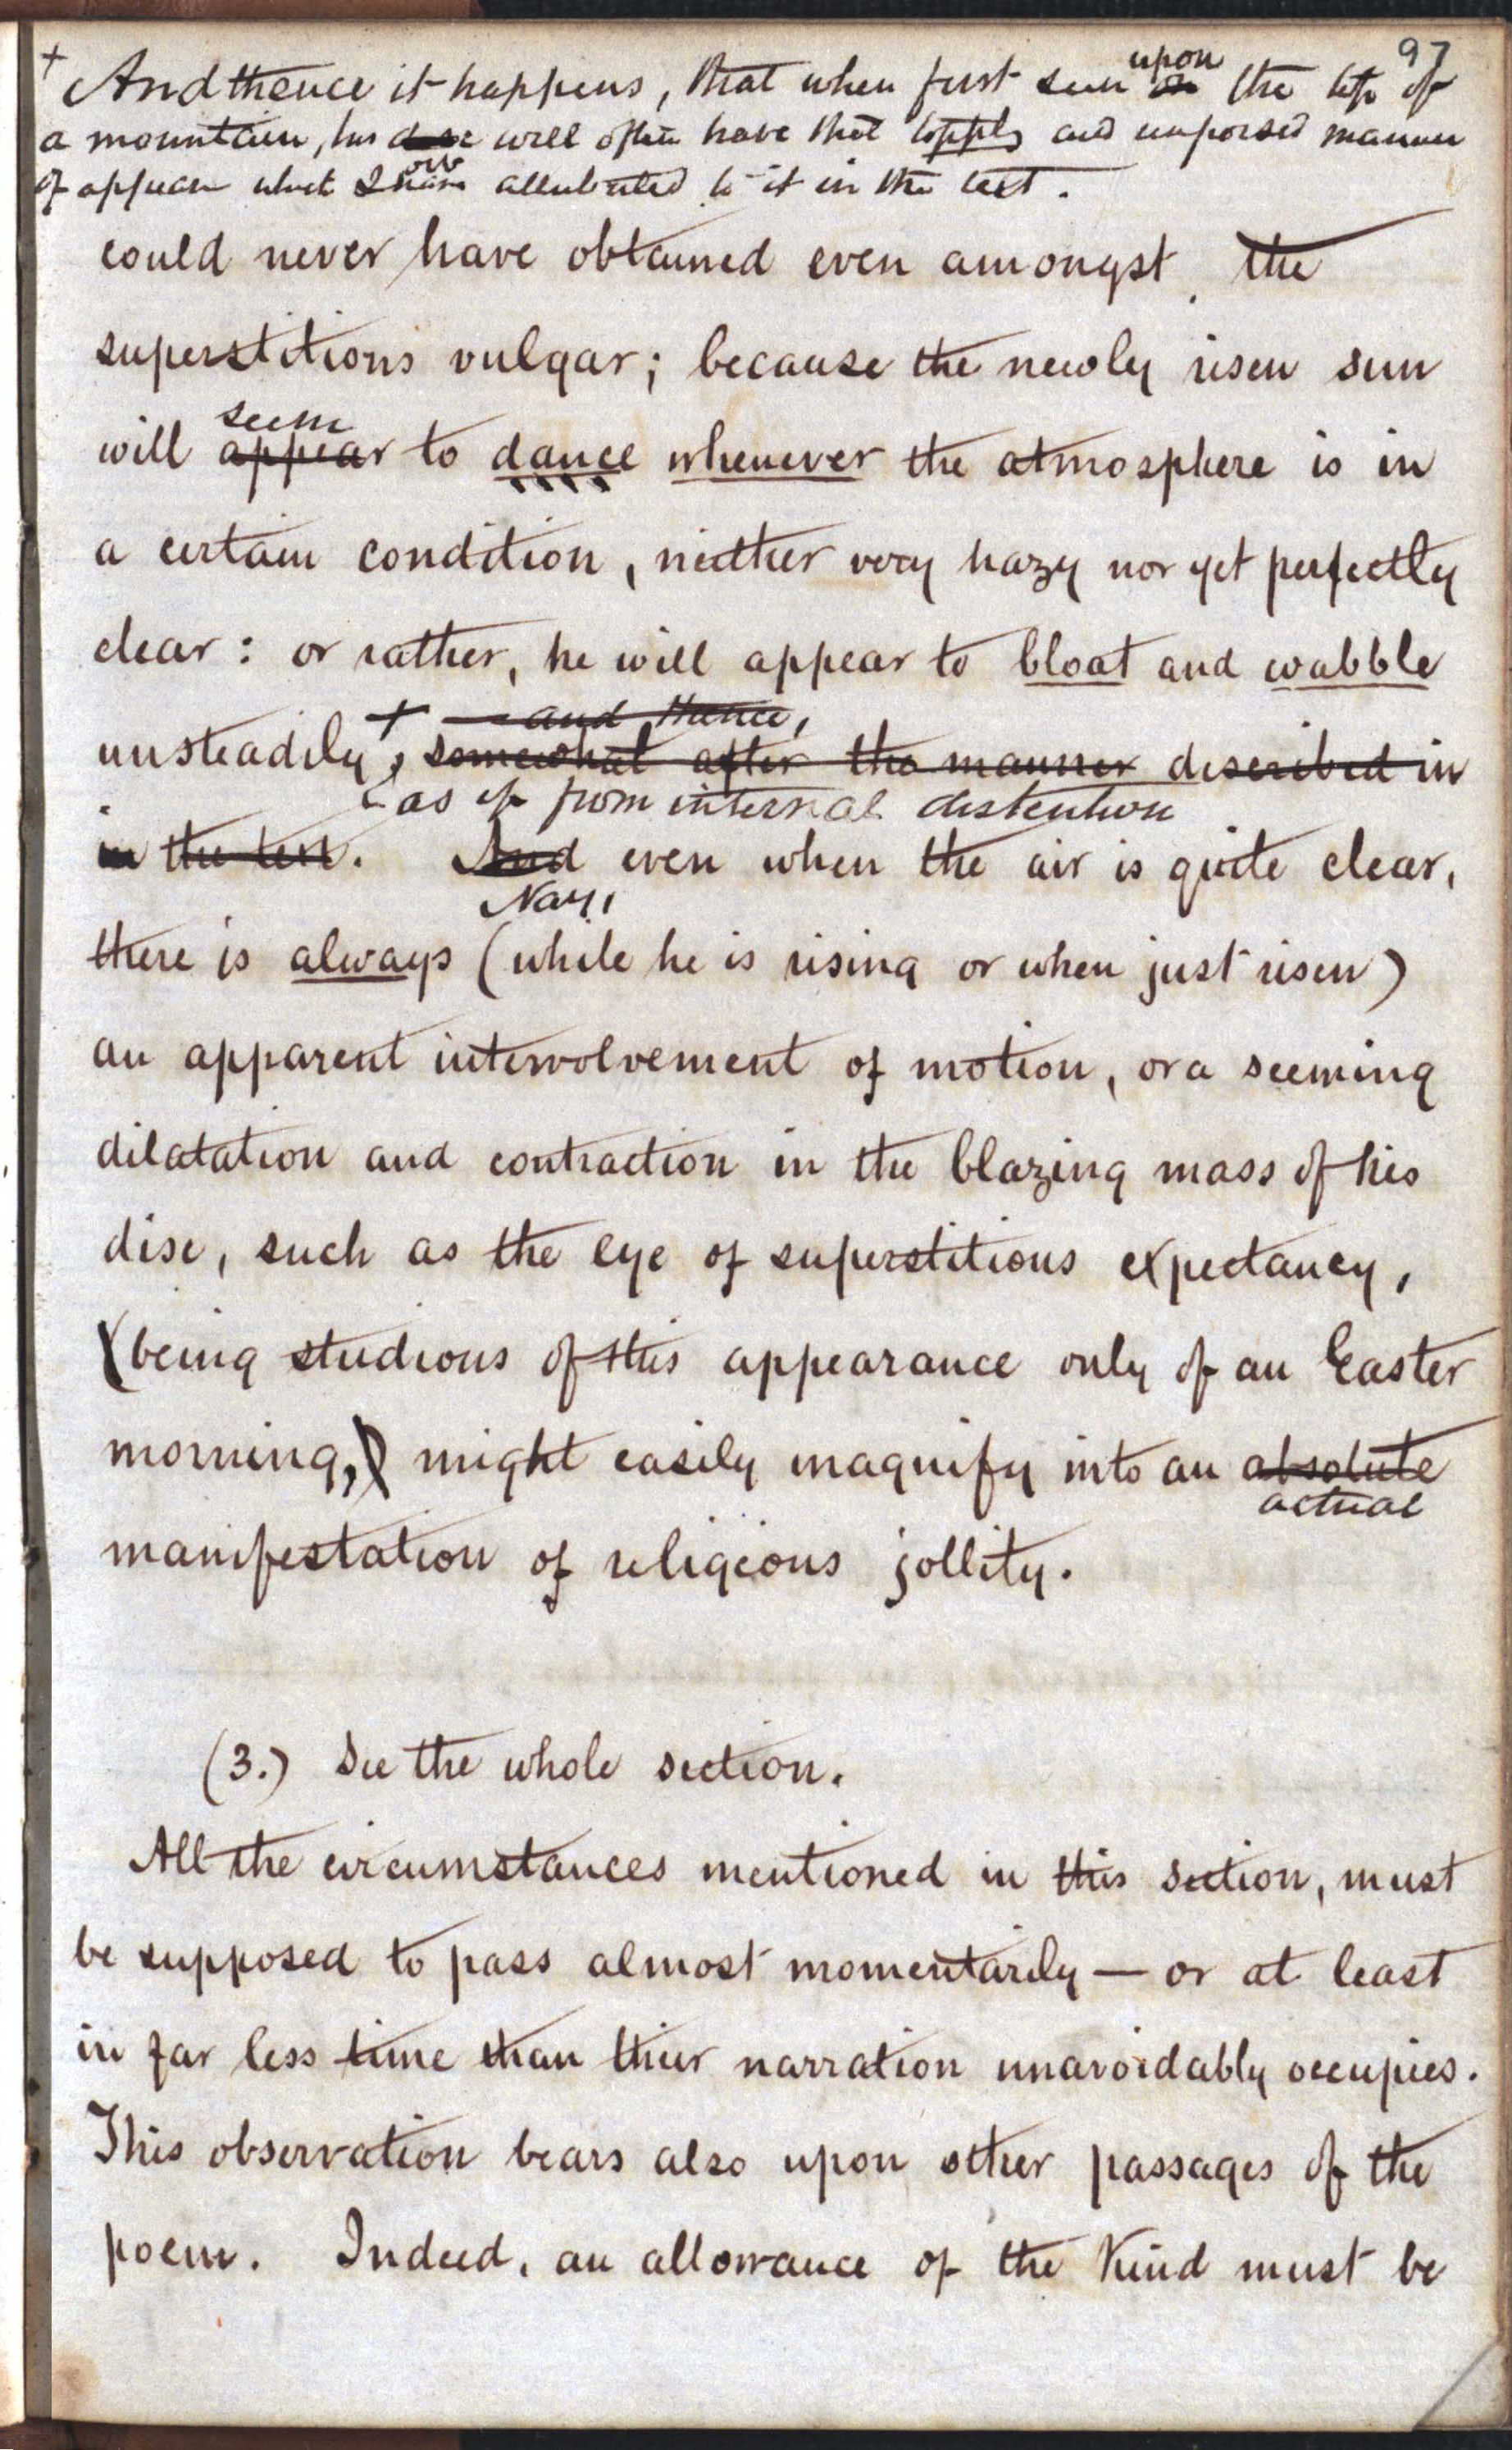 97
upon
+ And thence it happens, that when first seen on the top of
a mountain, his disc will often have that topply and unpoised manner
orb
of appear which I have attributed to it in the text.
could never have obtained even amongst the
superstitious vulgar; because the newly risen sun
seem
will appear to dance whenever the atmosphere is in
a certain condition, neither very hazy nor yet perfectly
clear: or rather, he will appear to bloat and wabble
+ — and thence,
unsteadily, somewhat after the manner described in
as if from internal distention
in the text. And even when the air is quite clear,
Nay,
there is always (while he is rising or when just risen)
an apparent intervolvement of motion, or a seeming
dilatation and contraction in the blazing mass of his
disc, such as the eye of superstitious expectancy,
(being studious of this appearance only of an Easter
morning,) might easily magnify into an absolute
actual
manifestation of religious jollity.
(3.) See the whole section.
All the circumstances mentioned in this section, must
be supposed to pass almost momentarily — or at least
in far less time than thier narration unavoidably occupies.
This observation bears also upon other passages of the
poem. Indeed, an allowance of the kind must be